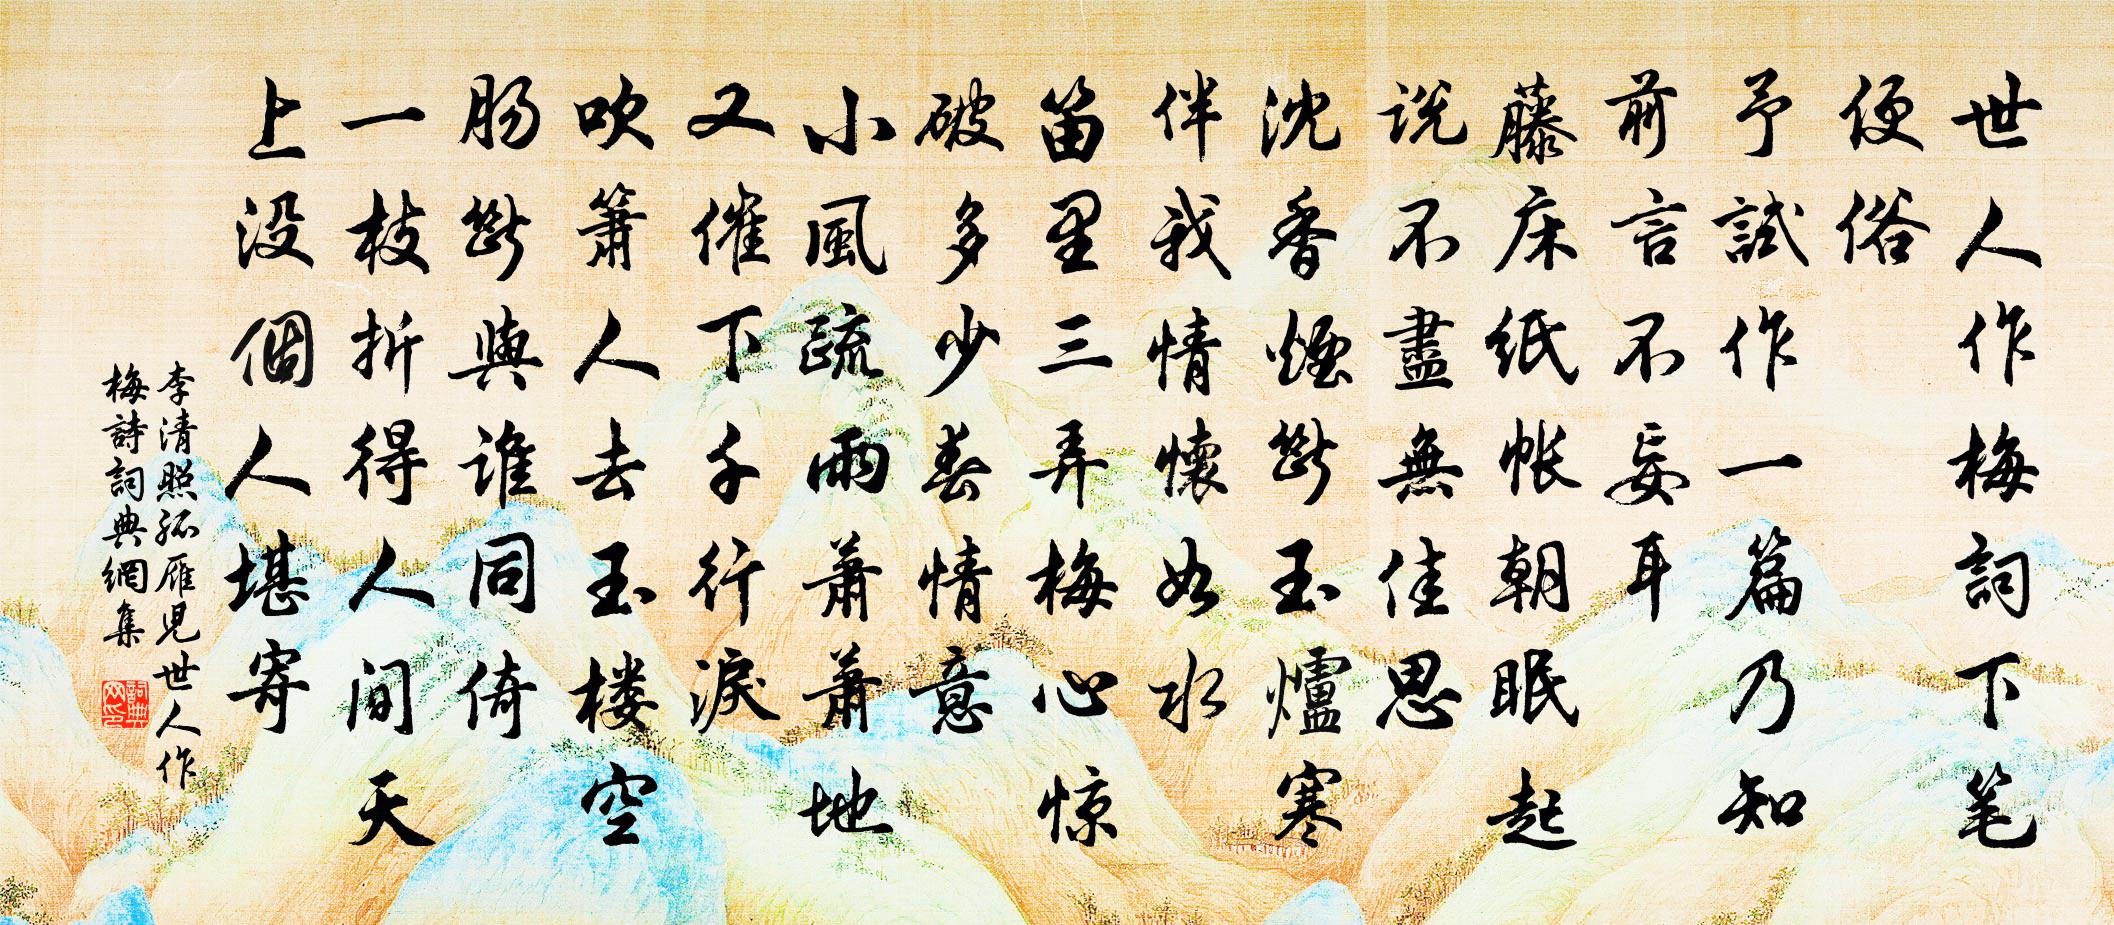 世人作梅詞下笔
便俗
予試作一篇乃知
前言不妄耳
藤床紙帐朝眠起
説不盡無佳思
沈香煙斷玉爐寒
伴我情懷如水
笛里三弄梅心惊
破多少春情意
小風疏雨蕭蕭地
又催下千行淚
吹簫人去玉楼空
腸斷與誰同倚
一枝折得人間天
上没個人堪寄
李清照孤雁児世人作
梅詩詞典網集